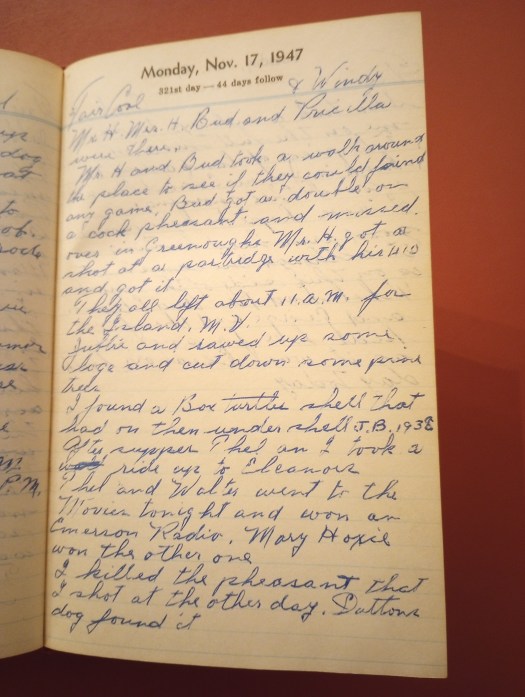 Monday, Nov. 17, 1947
321st day — 44 days follow
Fair Cool & Windy
Mr. H. Mrs. H. Bud and Pricilla
were there.
Mr. H and Bud took a walk around
the place to see if they could found
any game. Bud got a double on
a cock pheasant and missed.
over in Greenoughs Mr. H. got a
shot at a parbidge with his 410
and got it
They all left about 11. A.M. for
the Island. M.V.
and sawed up some
logs and cut down some pine
trees
I found a Box turtles shell that
had on then under shell J.B. 1938
After supper Thel an I took a
ride up to Eleanors
Thel and Walter went to the
Movies tonight and won an
Emerson Radio. Mary Hoxie
won the other one
I killed the pheasant that
I shot at the other day. Duttons
dog found it
P.M.